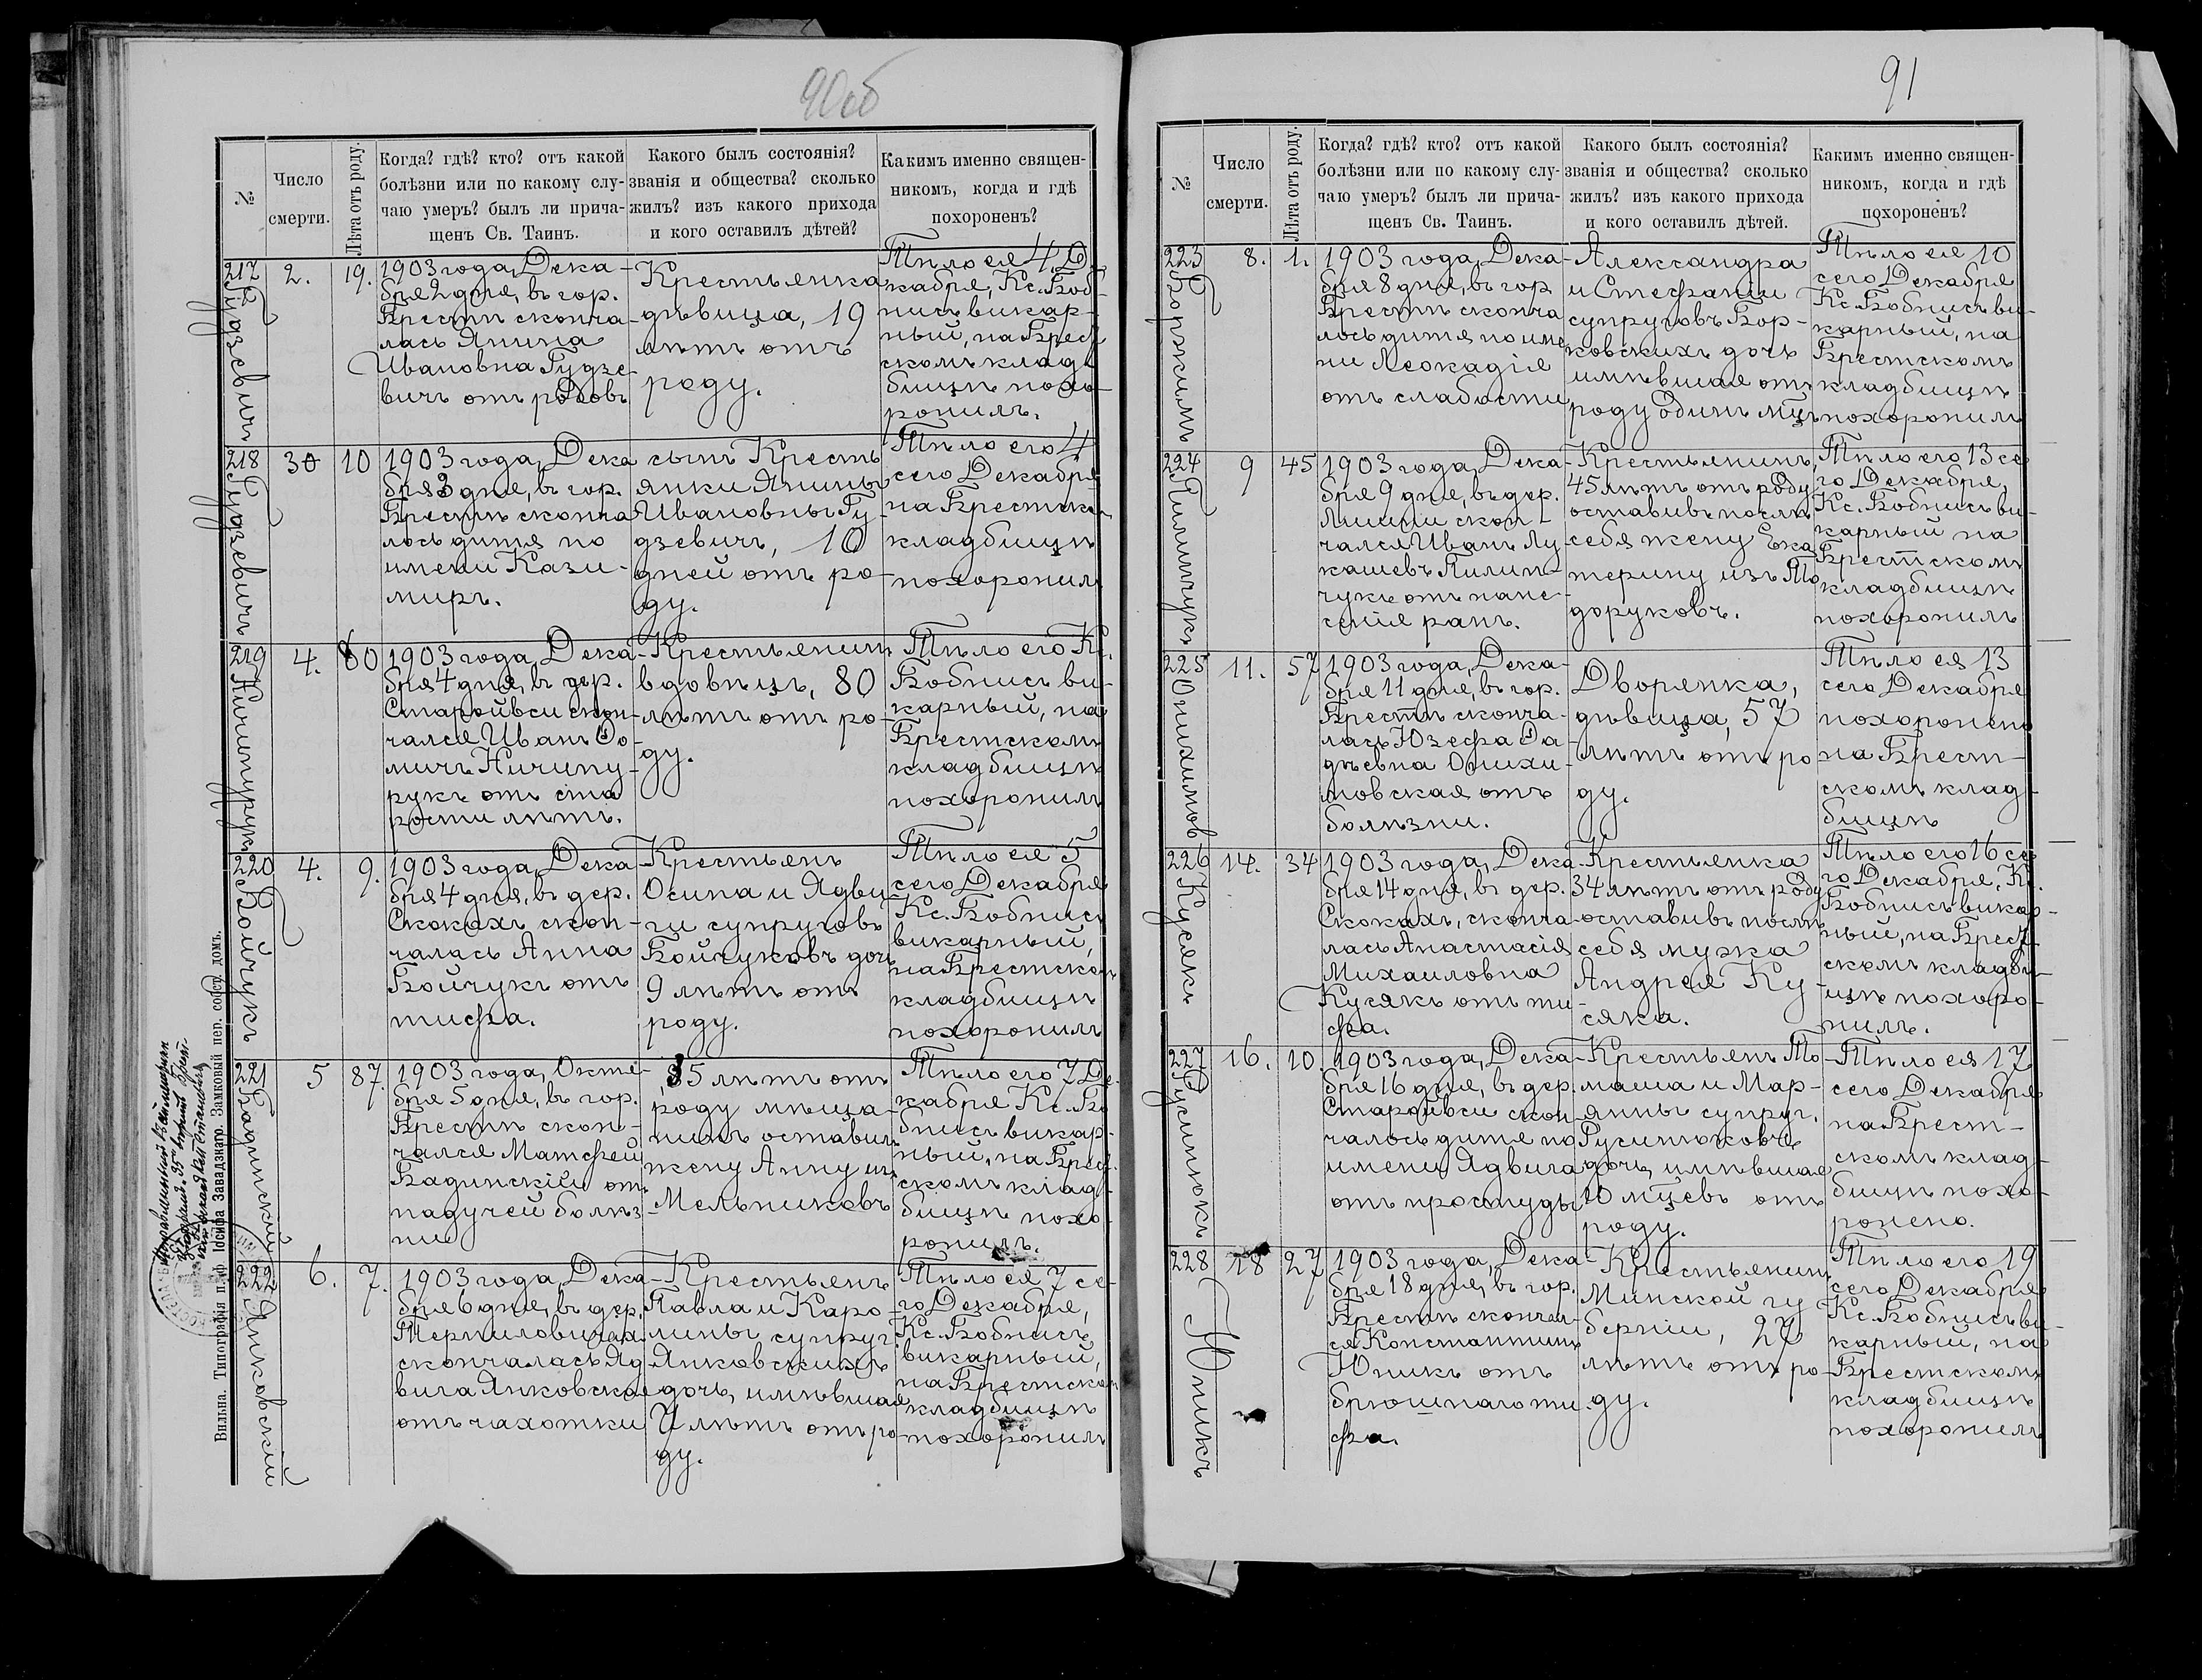 90об
№
Число
смерти.
Лѣта отъ роду.
Когда? гдѣ? кто? отъ какой
болѣзни или по какому слу-
чаю умеръ? былъ ли прича-
щенъ Св. Таинъ.
Какого былъ состоянія?
званія и общества? сколько
жилъ? изъ какого прихода
и кого оставилъ дѣтей?
Какимъ именно священ-
никомъ, когда и гдѣ
похороненъ?
217
Гудзевичъ
2.
19.
1903 года, Дека-
бря 2 дня, въ гор.
Брестѣ сконча-
лась Янина
Ивановна Гудзе-
вичъ отъ родовъ
Крестьянка
дѣвица, 19
лѣтъ отъ
роду.
Тѣло ея 4 Д
кабря, Кс. Боб-
нисъ викар-
ный, на Брест
скомъ клад-
бищѣ похо-
ронилъ.
218
Гудзевичъ
30
10
1903 года, Дека
бря 3 дня, въ гор.
Брестѣ сконча
лось дитя по
имени Кази-
миръ.
сынъ Кресть
янки Янины
Ивановны Гу-
дзевичъ, 10
дней отъ ро-
ду.
Тѣло его 4
сего Декабря
на Брестско
кладбищѣ
похоронилъ
219
Ничипурукъ
4.
80
1903 года, Дека-
бря 4 дня, въ дер.
Старойвси скон-
чался Иванъ Ѳо-
мичъ Ничипу-
рукъ отъ ста
рости лѣтъ.
Крестьянинъ
вдовецъ, 80
лѣтъ отъ ро-
ду.
Тѣло его Кс.
Бобнисъ ви-
карный, на
Брестскомъ
кладбищѣ
похоронилъ
220
Войчукъ
4.
9.
1903 года, Дека-
бря 4 дня, въ дер.
Скокахъ скон-
чалась Анна
Бойчукъ отъ
тифа.
Крестьянъ
Осипа и Ядви
ги супруговъ
Бойчуковъ дочь
9 лѣтъ отъ
роду.
Тѣло ея 5
сего Декабря
Кс. Бобнисъ
викарный,
на Брестском
кладбищѣ
похоронилъ
221
Бадинскій
5
87.
1903 года, Октя-
бря 5 дня, въ гор.
Брестѣ скон-
чался Матѳей
Бадинскій отъ
падучей болѣз
ни
85 лѣтъ отъ
роду мѣща-
нинъ оставилъ
жену Анну изъ
Мельниковъ
Тѣло его 7 Де-
кабря Кс. Бо
бнисъ викар-
ный, на Брест
скомъ клад-
бищѣ похо-
ронилъ.
222
Янковскій
6.
7.
1903 года, Дека-
бря 6 дня, въ дер.
скончалась Яд
вига Янковская
отъ чахотки
Крестьянъ
Павла и Каро-
лины супруг.
Янковскихъ
дочь, имѣвшая
7 лѣтъ отъ ро
ду.
Тѣло ея 7 се-
го Декабря,
Кс. Бобнисъ
викарный,
на Брестском
кладбищѣ
похоронилъ
Вильна. Типографія п. ф. Іосифа Завадзкаго. Замковый пер. собст. домъ.
91
№
Число
смерти.
Лѣта отъ роду.
Когда? гдѣ? кто? отъ какой
болѣзни или по какому слу-
чаю умеръ? былъ ли прича-
щенъ Св. Таинъ.
Какого былъ состоянія?
званія и общества? сколько
жилъ? изъ какого прихода
и кого оставилъ дѣтей.
Какимъ именно священ-
никомъ, когда и гдѣ
похороненъ?
223
8.
1.
1903 года, Дека-
бря 8 дня, въ гор
Брестѣ сконча
лось дитя по име
ни Леокадія
отъ слабости
Александра
и Стефаніи
супруговъ Бор-
ковскихъ дочь
имѣвшая отъ
роду одинъ мцъ
Тѣло ея 10
сего Декабря
Кс. Бобнисъ ви-
карный, на
Брестскомъ
кладбищѣ
похоронилъ
224
Пилипчукъ
9
45
1903 года, Дека-
бря 9 дня, въ дер.
скон-
чался Иванъ Лу
кашевъ Пилип-
чукъ отъ нане-
сенія ранъ.
Крестьянинъ,
45 лѣтъ отъ роду
оставивъ послѣ
себя жену Ека
терину изъ То
доруковъ.
Тѣло его 13 се
го Декабря,
Кс. Бобнисъ ви-
карный на
Брестскомъ
кладбищѣ
похоронилъ
225
Онихимов
11.
57
1903 года, Дека-
бря 11 дня, въ гор.
Брестѣ сконча-
лась Юзефа Ѳа-
дѣевна Онихи-
мовская отъ
болѣзни.
Дворянка,
дѣвица, 57
лѣтъ отъ ро
ду.
Тѣло ея 13
сего Декабря
похоронено
на Брест-
скомъ клад-
бищѣ
226
Кусякъ
14.
34
1903 года, Дека
бря 14 дня, въ дер.
Скокахъ, сконча-
лась Анастасія
Михаиловна
Кусякъ отъ ти
фа.
Крестьянка
34 лѣтъ отъ роду
оставивъ послѣ
себя мужа
Андрея Ку-
сяка.
Тѣло его 16 се
го Декабря, Кс.
Бобнисъ викар-
ный, на Брест
скомъ кладби-
щѣ похоро-
нилъ.
227
Русинюкъ
16.
10.
1903 года, Дека-
бря 16 дня, въ дер.
Старойвси скон
чалось дитя по
имени Ядвига
отъ простуды
Крестьянъ То-
маша и Мар-
янны супруг.
Русинюковъ
дочь, имѣвшая
10 мцевъ отъ
роду.
Тѣло ея 17
сего Декабря
на Брест-
скомъ клад-
бищѣ похо-
ронено.
228
Юникъ
18
27
1903 года, Дека
бря 18 дня, въ гор.
Брестѣ скончал-
ся Константинъ
Юникъ отъ
брюшнаго ти-
фа.
Крестьянинъ
Минской гу
берніи, 27
лѣтъ отъ ро-
ду.
Тѣло его 19
сего Декабря
Кс. Бобнисъ ви-
карный, на
Брестскомъ
кладбищѣ
похоронилъ